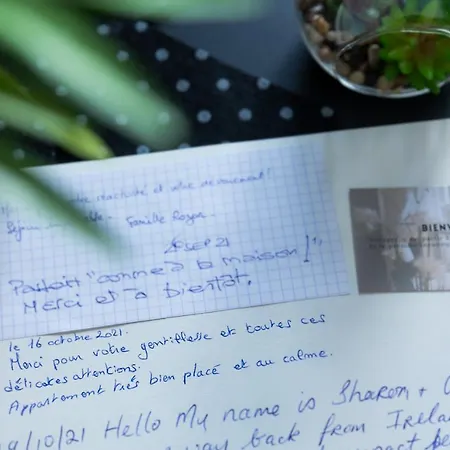 réactivité et
Séjour Famille
SEP 21
Parfait "comme à la maison!"
Merci et à bientôt.
BIENV
le 16 octobre 2021.
Merci pour votre gentillesse et toutes ces
délicates attentions.
Appartement très bien placé et au calme.
9/10/21 Hello My name is Sharon +
way back from Irela